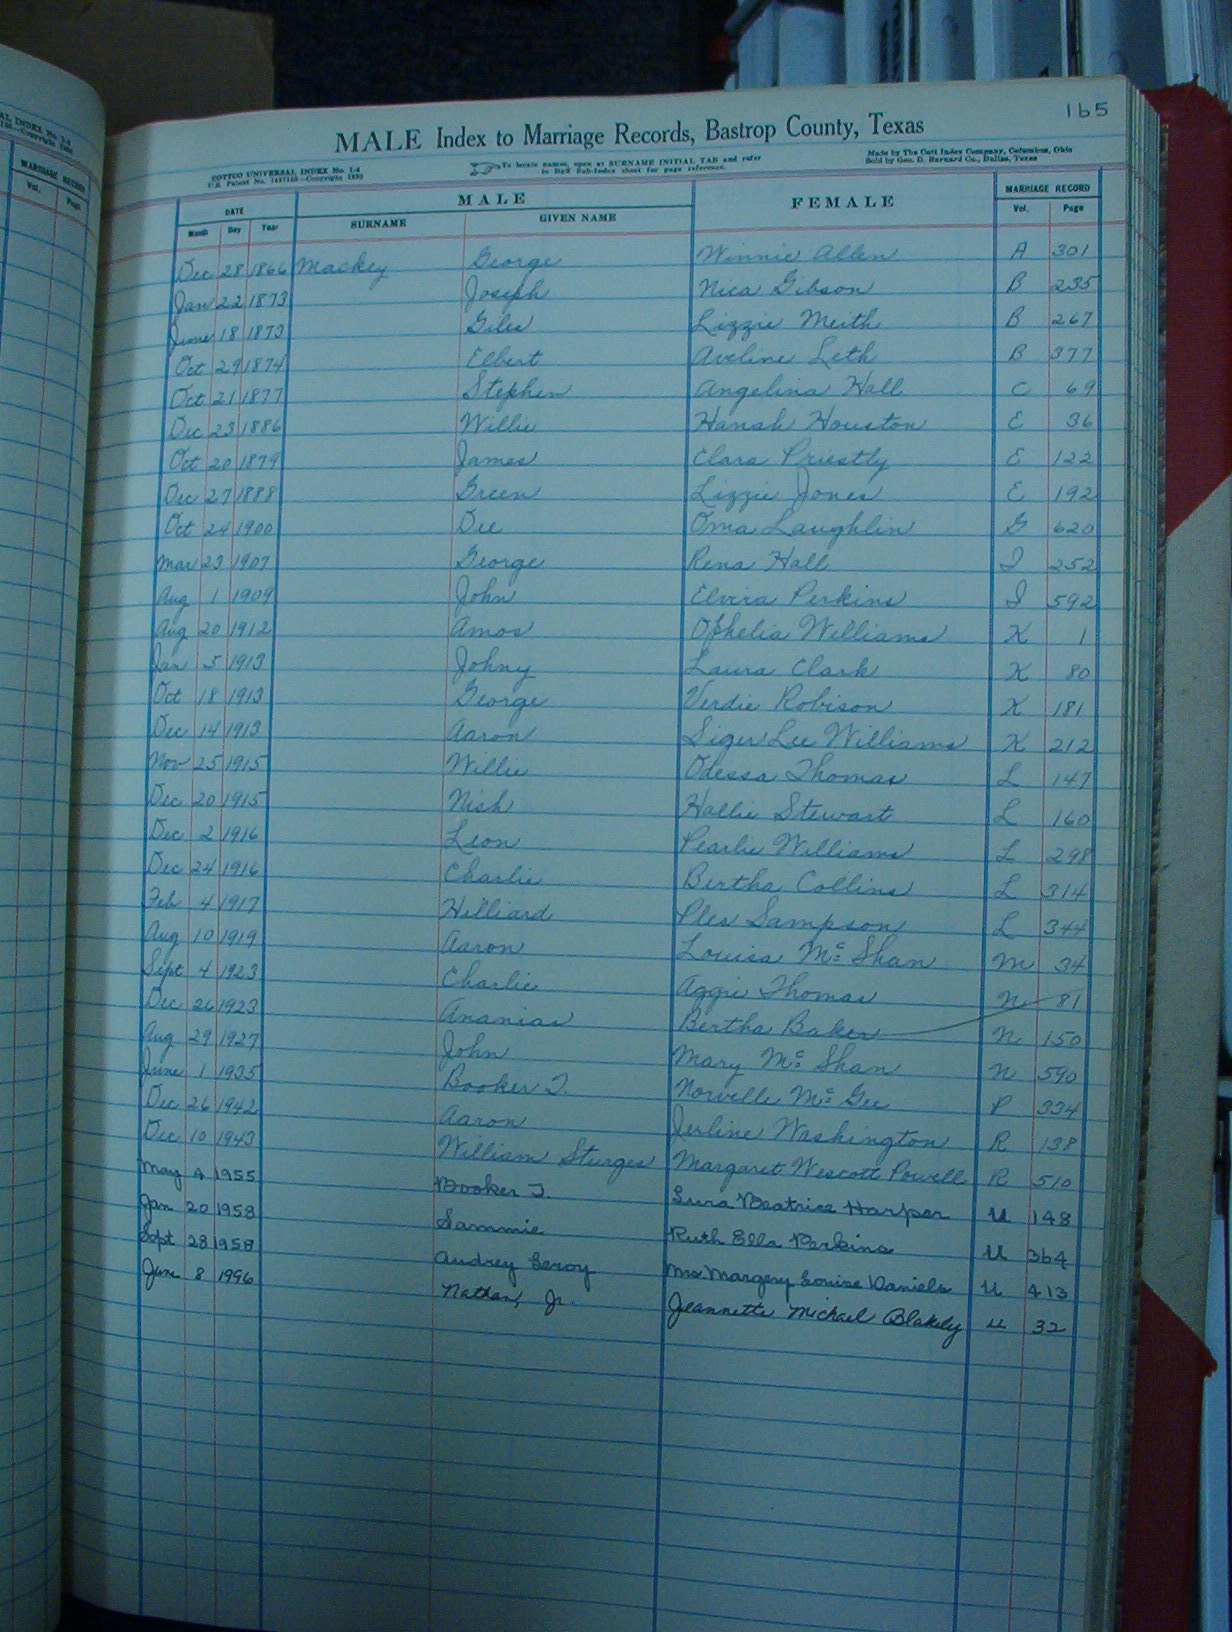 165
MALE Index to Marriage Records, Bastrop County, Texas
COTTCO UNIVERSAL INDEX No. 1-4
To locate names, open at SURNAME INITIAL TAB and refer
Made by The Cott Index Company, Columbus, Ohio
Sold by Geo. D. Barnard Co., Dallas, Texas
DATE MALE FEMALE MARRIAGE RECORD
Month Day Year SURNAME GIVEN NAME Vol. Page
Dec 28 1866 Mackey George Winnie Allen A 301
Jan 22 1873 Joseph Nica Gibson B 235
June 18 1873 Giles Lizzie Meith B 267
Oct 29 1874 Elbert Aveline Leth B 377
Oct 21 1877 Stephen Angelina Hall C 69
Dec 23 1886 Willie Hanah Houston E 36
Oct 20 1879 James Clara Priestly E 122
Dec 27 1888 Green Lizzie Jones E 192
Oct 24 1900 Dee Oma Laughlin G 620
Mar 23 1907 George Rena Hall I 252
Aug 1 1909 John Elvira Perkins I 592
Aug 20 1912 Amos Ophelia Williams K 1
Jan 5 1913 Johny Laura Clark K 80
Oct 18 1913 George Verdie Robison K 181
Dec 14 1913 Aaron Siger Lee Williams K 212
Nov 25 1915 Willie Odessa Thomas L 147
Dec 20 1915 Nish Hallie Stewart L 160
Dec 2 1916 Leon Pearlie Williams L 298
Dec 24 1916 Charlie Bertha Collins L 314
Feb 4 1917 Hilliard Ples Sampson L 344
Aug 10 1919 Aaron Louisa Mc Shan M 34
Sept 4 1923 Charlie Aggie Thomas N 81
Dec 26 1923 Ananias Bertha Baker N 150
Aug 29 1927 John Mary Mc Shan N 590
June 1 1935 Booker T. Norvelle Mc Gee P 334
Dec 26 1942 Aaron Jerline Washington R 138
Dec 10 1943 William Sturges Margaret Wescott Powell R 510
May 4 1955 Booker T. Lura Beatrice Harper U 148
Jan 20 1958 Sammie Ruth Ella Perkins U 364
Sept 28 1958 Audrey Leroy Mrs. Margery Louise Daniels U 413
Jun 8 1996 Nathan, Jr. Jeannette Michael Blakely U 32
MARRIAGE RECORD
Vol. Page